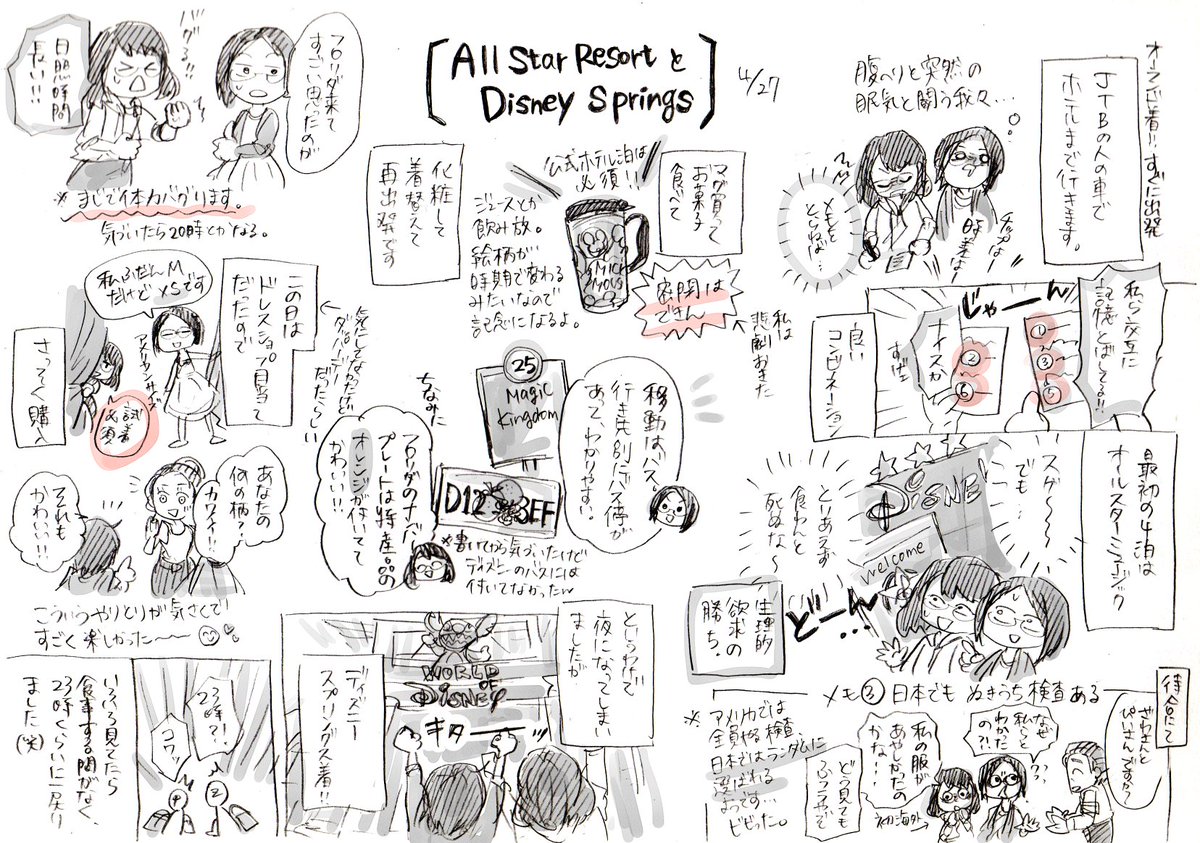 [All Star Resortと
Disney Springs]
4/27
オーランド着!!すぐに出発
JTBの人の車で
ホテルまで行きます。
腹ペリと突然の
眠気と闘う我々…
メモを
とらねば…
チップは…
時差は…
私ら交互に
記憶とばしてる!!
じゃーん
①
③
⑤
②
⑥
ナイスカ
すげェ
良い
コンビネーション
最初の4泊は
オールスターミュージック
スゲ〜〜
でも…
とりあえず
食わんと
死ぬな〜
DiSNE
welcome
どーん…
生理的
欲求の
勝ち。
メモ③ 日本でも ぬきうち検査ある
待合にて
なぜ
私らと
わかった
の?!
私の服が
あやしかったの
かな…
どう見ても
ふつうやで
初海外→
※アメリカでは
全員やる検査、
日本ではランダムに
選ばれる
ようです…
ビビった。
マグ買って
お菓子
食べて
公式ホテル泊は
必須!!
ジュースとか
飲み放。
絵柄が
時期で変わる
みたいなので
記念になるよ。
密閉は
できん
私は
悲劇おきた
化粧して
着替えて
再出発です
移動はバス。
行き先別にバス停が
あって、わかりやすい。
25
Magic
Kingdom
D12 3EF
ちなみに
フロリダのナンバー
プレートは特産品の
オレンジが付いてて
かわいい!!
※書いてから気づいたけど
ディズニーのバスには
付いてなかったw
というわけで
夜になってしまい
ましたが
ディズニー
スプリングス着!!
WORLD
OF
DiSNEy
キターー
フロリダ来て
すごい思ったのが
バグる!!
日照時間
長い!!
※まじで体内バグります。
気づいたら20時とかなる。
この日は
ドレスショップ目当て
だったので
私ふだんM
だけどXSです
アメリカンサイズ
試着
必須
さっそく購入
あなたの
何の柄?
カワイイ!!
それも
かわいい!!
こういうやりとりが気さくで
すごく楽しかった〜〜
いろいろ見てたら
食事する間がなく、
23時くらいに戻り
ました(笑)
23時?!
コワッ